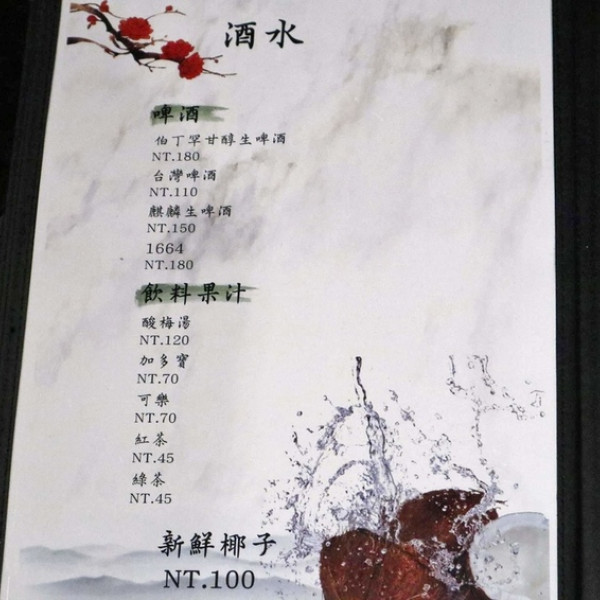 酒水
啤酒
伯丁罕甘醇生啤酒
NT.180
台灣啤酒
NT.110
麒麟生啤酒
NT.150
1664
NT.180
飲料果汁
酸梅湯
NT.120
加多寶
NT.70
可樂
NT.70
紅茶
NT.45
綠茶
NT.45
新鮮椰子
NT.100